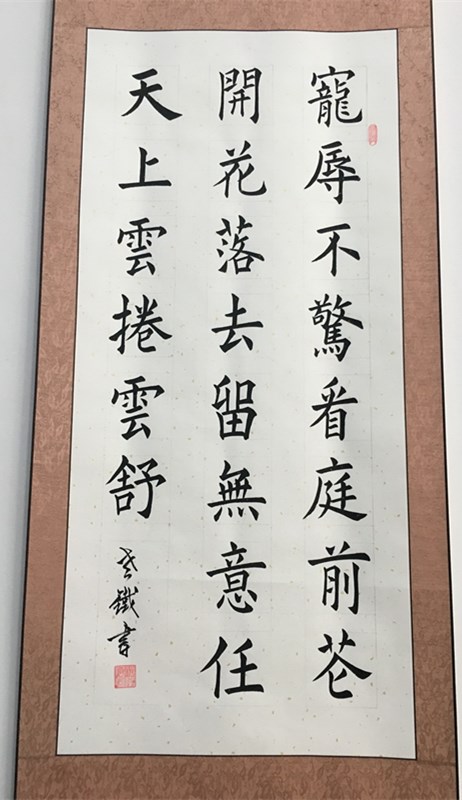 寵辱不驚看庭前花
開花落去留無意任
天上雲捲雲舒
老鐵書